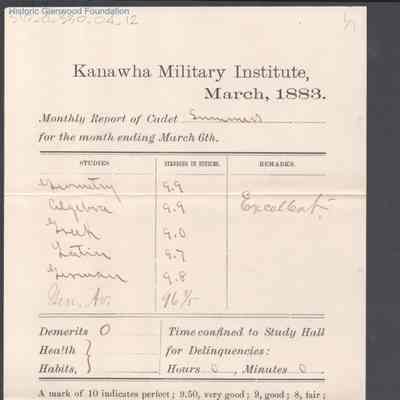 Historic Glenwood Foundation
Kanawha Military Institute,
March, 1883.
Monthly Report of Cadet Summers
for the month ending March 6th.
STUDIES STANDING IN STUDIES. REMARKS.
Geometry 9.9
Algebra 9.9 Excellent
Greek 9.0
Latin 9.7
German 9.8
Gen. Av. 96
Demerits 0 Time confined to Study Hall
Health } for Delinquencies:
Habits, } Hours 0, Minutes 0.
A mark of 10 indicates perfect; 9.50, very good; 9, good; 8, fair;